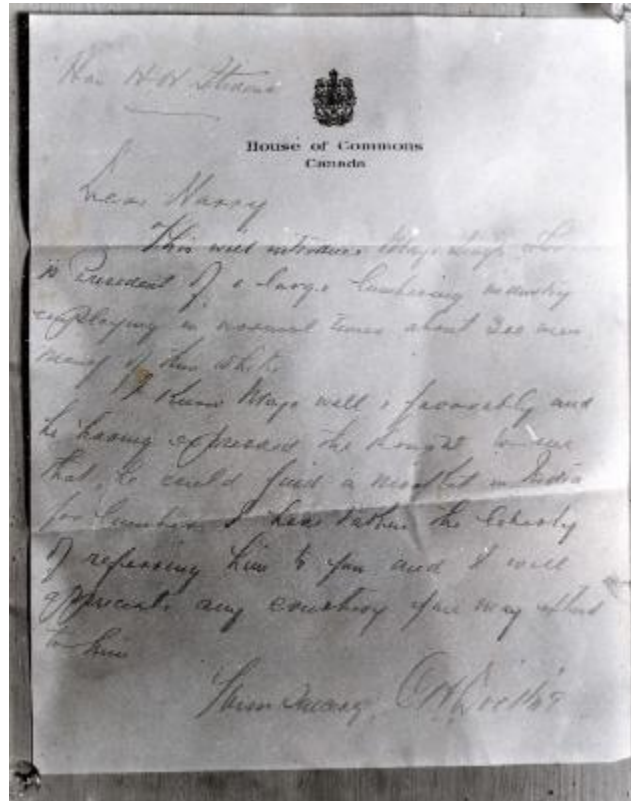 Hon H. H. Stevens
House of Commons
Canada
Dear Harry
This will introduce Mayo Singh who
is President of a large lumbering industry
employing in normal times about 300 men
many of them white.
I know Mayo well & favorably and
he having expressed the thought to me
that he could find a market in India
for lumber I have taken the liberty
of referring him to you and I will
appreciate any courtesy you may extend
to him